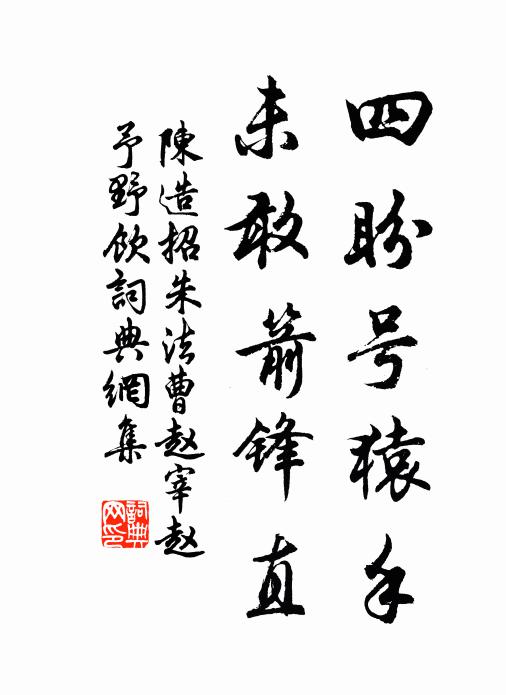 四盼号猿手
未敢箭锋直
陳造招朱法曹赵宰赵
予野饮詞典網集
詞典网印